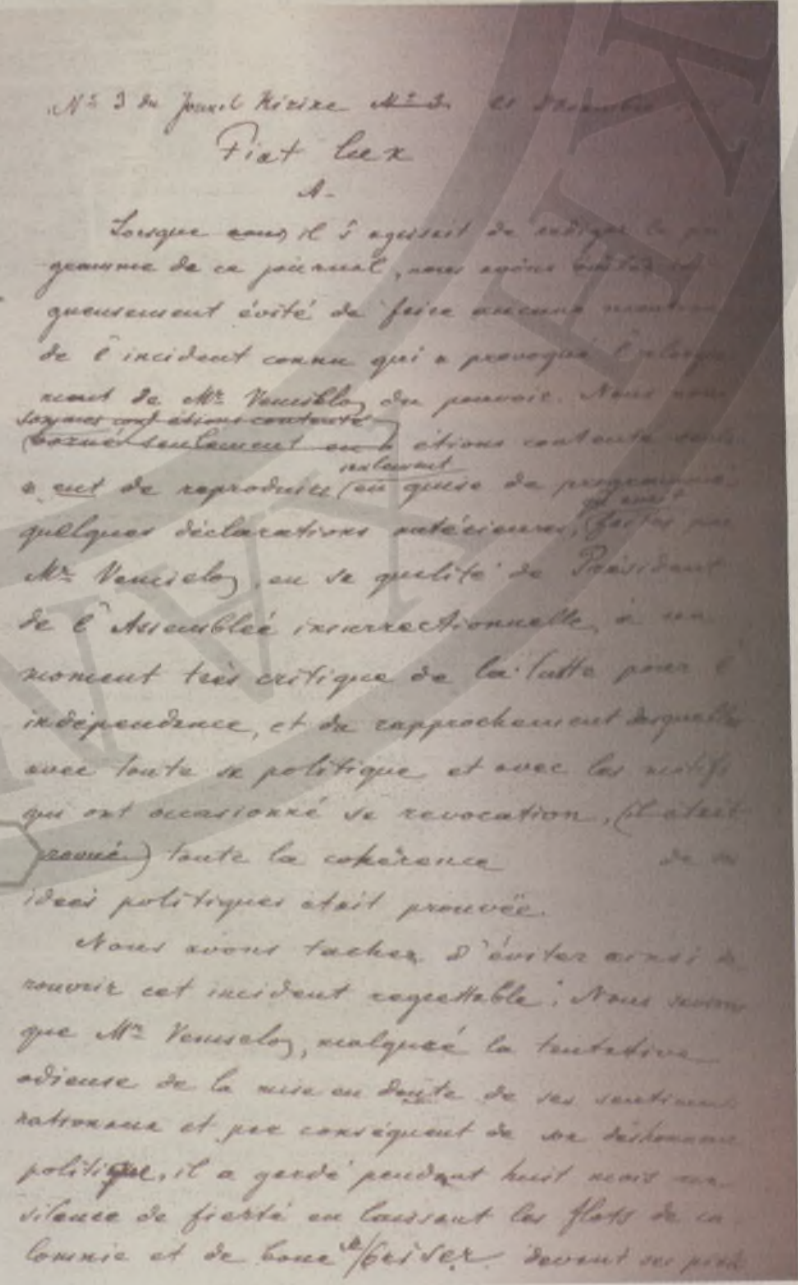 No 3 du Journal Kirixe No 3 21 Décembre
Fiat lux
A-
Lorsque nous il s'agissait de rediger le pro
gramme de ce journal, nous avions
gueusement évité de faire aucune mention
de l'incident connu qui a provoqué l'eloigne
ment de Mr Veniselos du pouvoir. Nous nous
sommes cont étions contenté
borné seulement en étions contenté seule
ment de reproduire en guise de programme
seulement
quelques déclarations antérieures, faites par
qu'avait
Mr Veniselos, en sa qualité de Président
de l'Assemblée insurrectionnelle, à un
moment très critique de la lutte pour l'
indépendance, et du rapprochement desquelles
avec toute sa politique et avec les motifs
qui ont occasionné sa revocation, (il était
prouvé) toute la cohérence de ses
idées politiques était prouvée.
Nous avons tacher d'éviter ainsi de
rouvrir cet incident regrettable. Nous savons
que Mr Veniselos, malgré la tentative
odieuse de la mise en doute de ses sentiments
nationaux et par conséquent de son déshonneur
politique, il a gardé pendant huit mois un
silence de fierté en laissant les flots de ca
lomnie et de boue se briser devant ses pieds